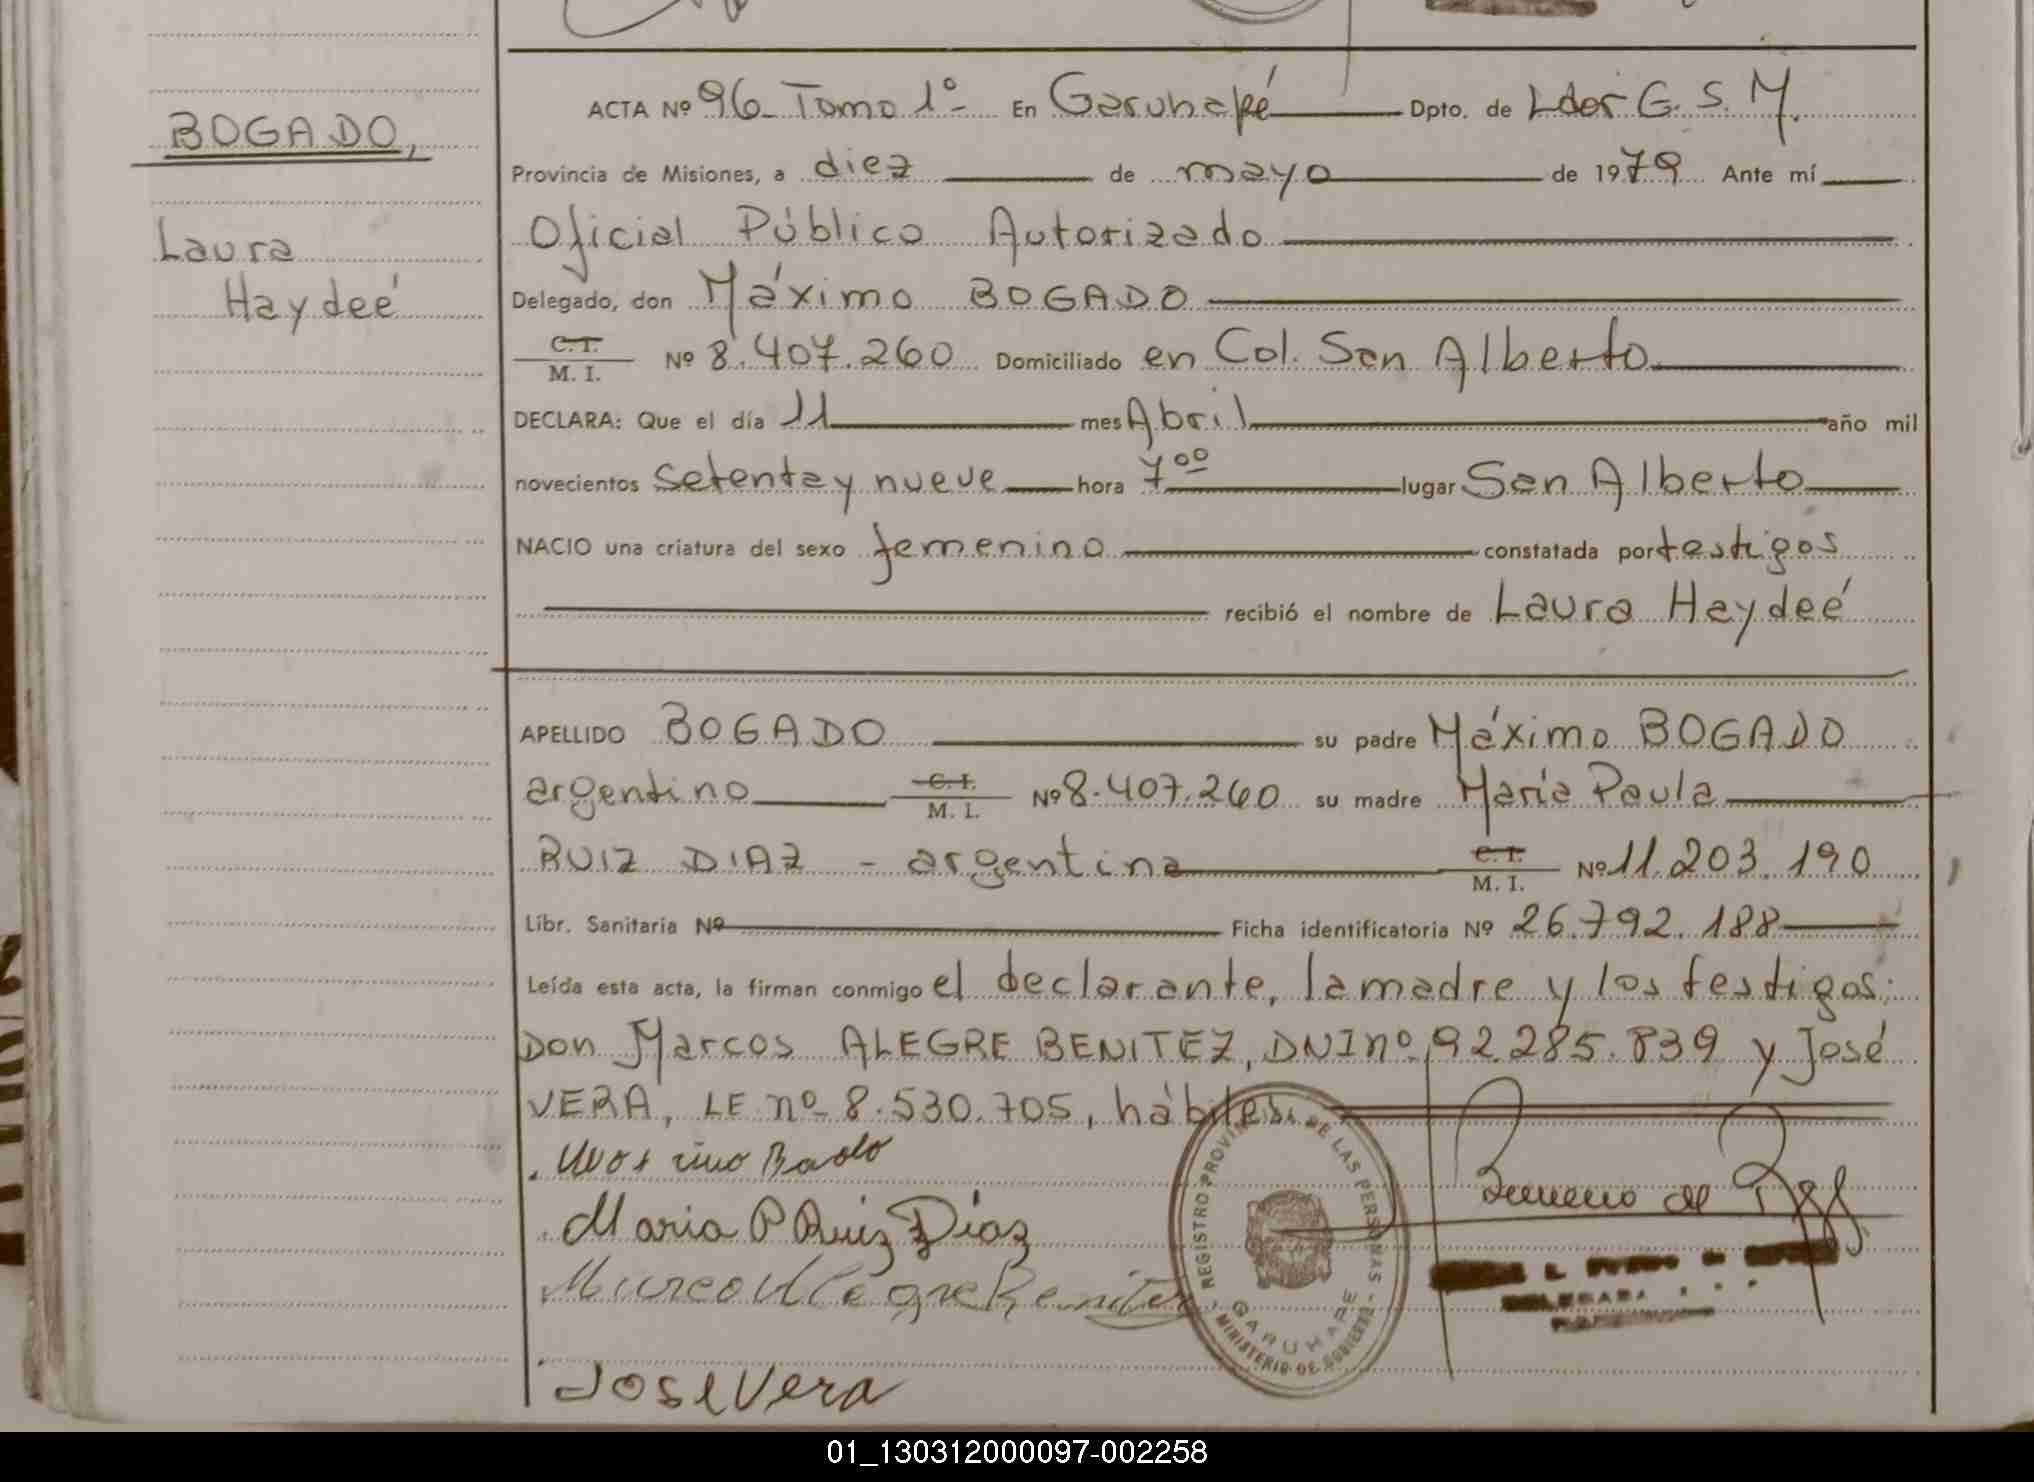 BOGADO,
Laura
Haydeé
ACTA Nº 96 Tomo 1º En Garuhapé Dpto. de Ldor G. S. M.
Provincia de Misiones, a diez de mayo de 1979 Ante mí
Oficial Público Autorizado
Delegado, don Máximo BOGADO
C.I.
M. I. Nº 8.407.260 Domiciliado en Col. San Alberto
DECLARA: Que el día 11 mes Abril año mil
novecientos setenta y nueve hora 7⁰⁰ lugar San Alberto
NACIO una criatura del sexo femenino constatada por testigos
recibió el nombre de Laura Haydeé
APELLIDO BOGADO su padre Máximo BOGADO
argentino C.I. M. I. Nº 8.407.260 su madre María Paula
RUIZ DIAZ - argentina C.I. M. I. Nº 11.203.190
Libr. Sanitaria Nº Ficha identificatoria Nº 26.792.188
Leída esta acta, la firman conmigo el declarante, la madre y los testigos:
Don Marcos ALEGRE BENITEZ, DNI nº 92.285.839 y José
VERA, LE nº 8.530.705, hábiles.
Maria P Ruiz Díaz
Jose Vera
REGISTRO PROVINCIAL DE LAS PERSONAS - MINISTERIO DE GOBIERNO -
GARUHAPE
DELEGADA
01_130312000097-002258